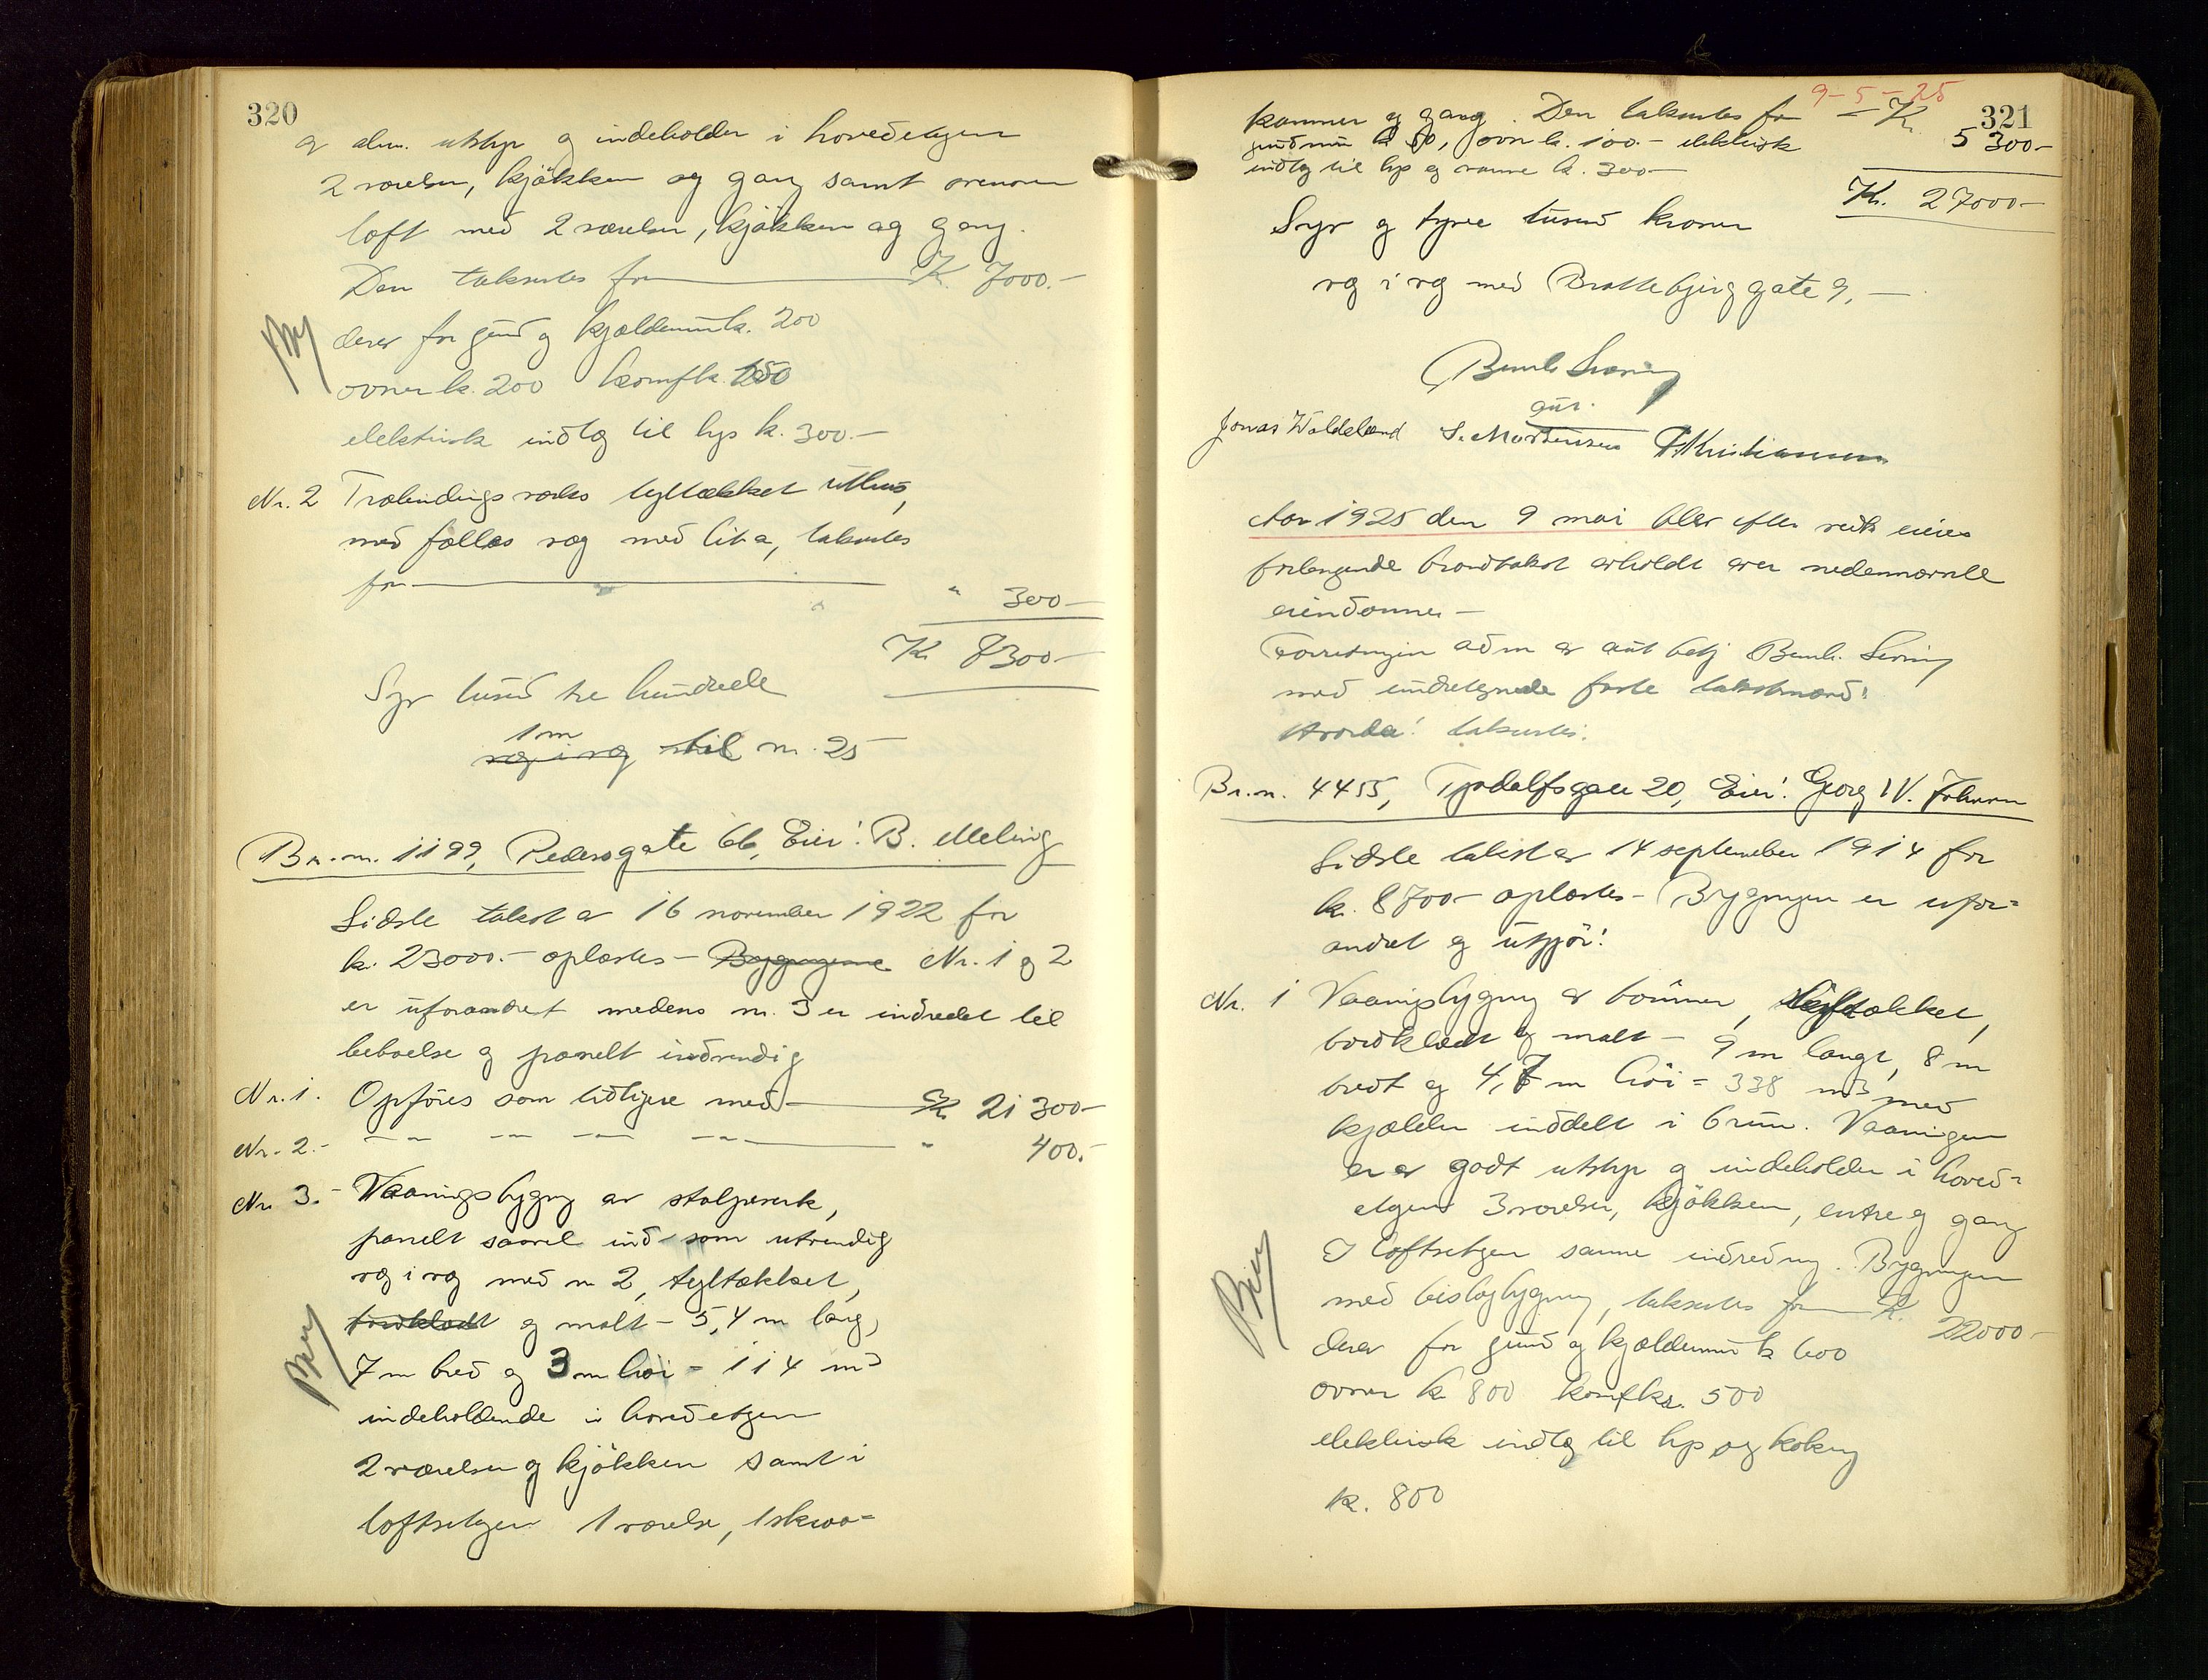 320
av alm. utstyr og indeholder i hovedetagen
2 værelser, kjøkken og gang samt ovenover
loft med 2 værelser, kjøkken og gang.
Den takseres for Kr. 7000.-
derav for grund og kjældermur k. 200
ovner k. 200 komf k. 150
elektrisk indlæg til lys k. 300.-
Nr. 2 Træbindingsverks tegltækket uthus,
med fælles væg med lit a, takseres
for " 300-
Kr 8300-
Syv tusind tre hundrede
1 m
væg i væg til nr. 25
Br.nr. 1199, Pedersgate 66, Eier: B. Meling
Sidste takst av 16 november 1922 for
kr. 23000.- oplæstes - Bygningerne Nr. 1 og 2
er uforandret medens nr. 3 er indredet til
beboelse og panelt indvendig
Nr. 1. Opføres som tidligere med Kr 21300-
Nr. 2.- " 400.-
Nr 3.- Vaaningsbygning av stolpeverk,
panelt saavel ind som utvendig
væg i væg med nr 2, tegltækket,
bordklædt og malt - 5,4 m lang,
7 m bred og 3 m høi = 114 m3
indeholdende i hovedetagen
2 værelser og kjøkken samt i
loftsetagen 1 værelse, 1 skraa=
9-5-25
321
kammer og gang. Den takseres for - Kr. 5300-
grundmur k 50, ovn k. 100.- elektrisk
indlæg til lys og varme k. 300-
Kr. 27000-
Syv og tyve tusind kroner
væg i væg med Brattebjerggate 9,-
Bernh. Svering
aut.
Jonas Waldeland S. Mortensen T. Kristiansen
Aar 1925 den 9 mai blev efter vedk eieres
forlangende brandtakst avholdt over nedennævnte
eiendomme -
Forretningen adm av aut betj Bernh. Svering
med undertegnede faste takstmænd:
Hvorda! takseres:
Br.nr. 4455, Tjodolfsgate 20, Eier: Georg W. Johnson
Sidste takst av 14 september 1914 for
kr. 8700- oplæstes - Bygningen er ufor=
andret og utgjør:
Nr. 1 Vaaningsbygning av tømmer, skifertækket,
bordklædt og malt - 9 m langt, 8 m
bredt og 4,7 m høi = 338 m3 med
kjælder inddelt i 6 rum. Vaaningen
er av godt utstyr og indeholder i hoved=
etagen 3 værelser, kjøkken, entre og gang
I loftsetagen samme indredning. Bygningen
med bislagbygning, takseres for Kr. 22000-
derav for grund og kjældermur k 600
ovner k 800 komf kr. 500
elektrisk indlæg til lys og kokning
k. 800